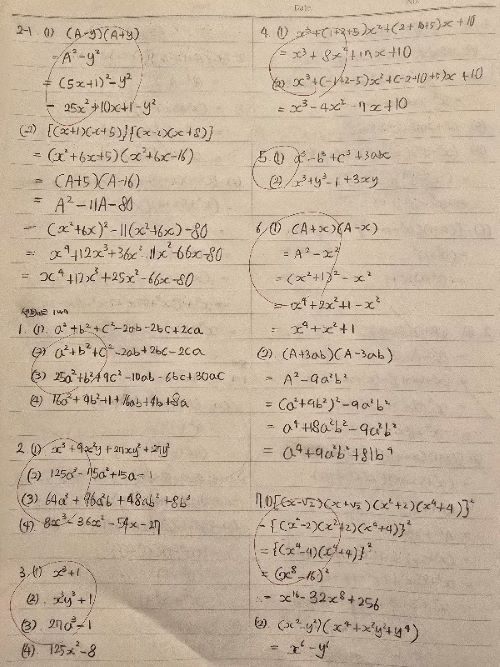 2-1. (1) (A-y)(A+y)
= A²-y²
= (5x+1)²-y²
= 25x²+10x+1-y²
(2) {(x+1)(x+5)}{(x-2)(x+8)}
= (x²+6x+5)(x²+6x-16)
= (A+5)(A-16)
= A²-11A-80
= (x²+6x)²-11(x²+6x)-80
= x⁴+12x³+36x²-11x²-66x-80
= x⁴+12x³+25x²-66x-80
1. (1) a²+b²+c²-2ab-2bc+2ca
(2) a²+b²+c²-2ab+2bc-2ca
(3) 25a²+b²+9c²-10ab-6bc+30ac
(4) 16a²+4b²+1+16ab+4b+8a
2. (1) x³+9x²y+27xy²+27y³
(2) 125a³-75a²+15a-1
(3) 64a³+96a²b+48ab²+8b³
(4) 8x³-36x²-54x-27
3. (1) x³+1
(2) x³y³+1
(3) 27a³-1
(4) 125x³-8
4. (1) x³+(1+2+5)x²+(2+10+5)x+10
= x³+8x²+17x+10
(2) x³+(-1+2-5)x²+(-2-10+5)x+10
= x³-4x²-7x+10
5. (1) a³-b³+c³+3abc
(2) x³+y³-1+3xy
6. (1) (A+x)(A-x)
= A²-x²
= (x²+1)²-x²
= x⁴+2x²+1-x²
= x⁴+x²+1
(2) (A+3ab)(A-3ab)
= A²-9a²b²
= (a²+9b²)²-9a²b²
= a⁴+18a²b²-9a²b²
= a⁴+9a²b²+81b⁴
7. (1) {(x-√2)(x+√2)(x²+2)(x⁴+4)}²
= {(x²-2)(x²+2)(x⁴+4)}²
= {(x⁴-4)(x⁴+4)}²
= (x⁸-16)²
= x¹⁶-32x⁸+256
(2) (x²-y²)(x⁴+x²y²+y⁴)
= x⁶-y⁶